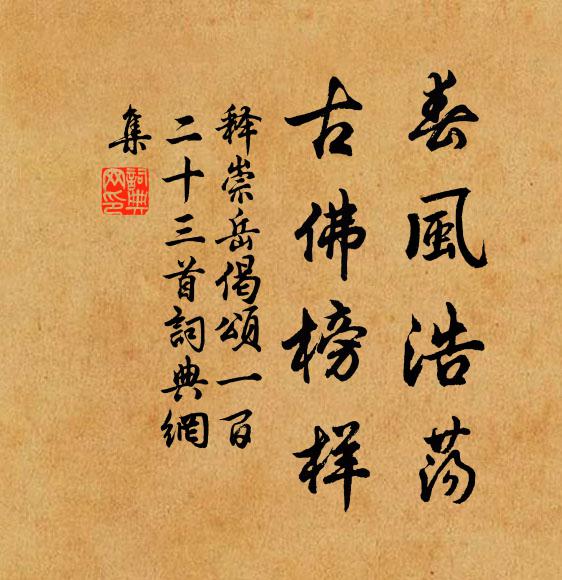 春風浩蕩
古佛榜样
释崇岳偈頌一百
二十三首詞典網
集
詞典
网印